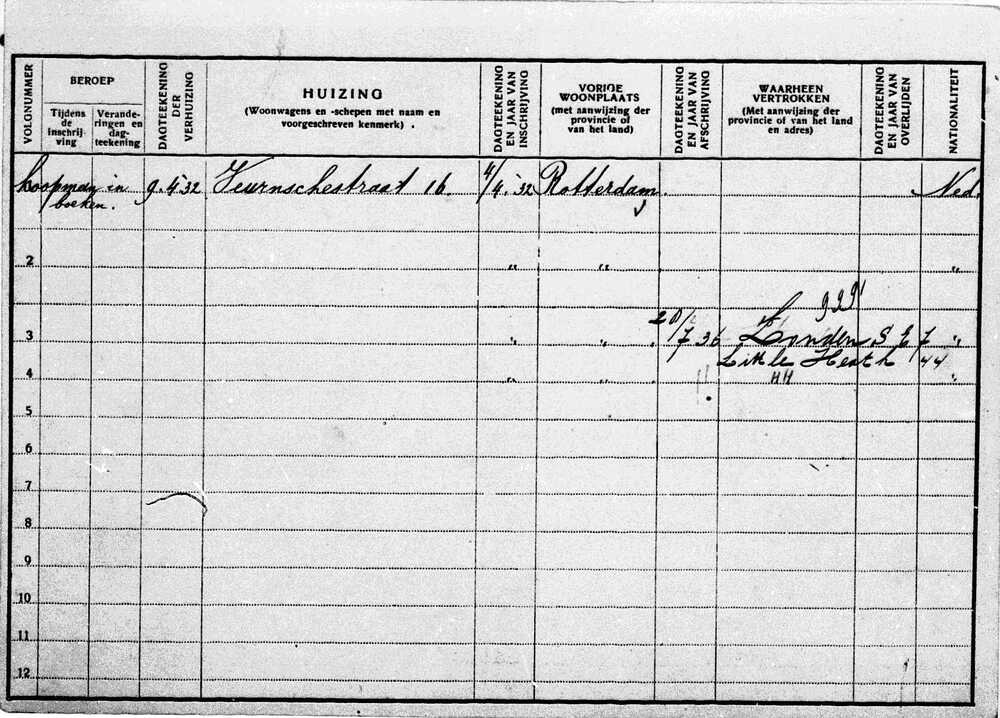 VOLGNUMMER
BEROEP
Tijdens de inschrijving
Verande-ringen en dag-teekening
DAGTEEKENING DER VERHUIZING
HUIZING
(Woonwagens en -schepen met naam en voorgeschreven kenmerk)
DAGTEEKENING EN JAAR VAN INSCHRIJVING
VORIGE WOONPLAATS
(met aanwijzing der provincie of van het land)
DAGTEEKENING EN JAAR VAN AFSCHRIJVING
WAARHEEN VERTROKKEN
(Met aanwijzing der provincie of van het land en adres)
DAGTEEKENING EN JAAR VAN OVERLIJDEN
NATIONALITEIT
koopman in 9.4.'32 Veurnschestraat 16. 4/4.'32 Rotterdam. Ned.
boeken.
2 " " "
939
3 " " 20/7 36 Londen S E 7 "
Little Heath 44
4 " " " HH "
5
6
7
8
9
10
11
12